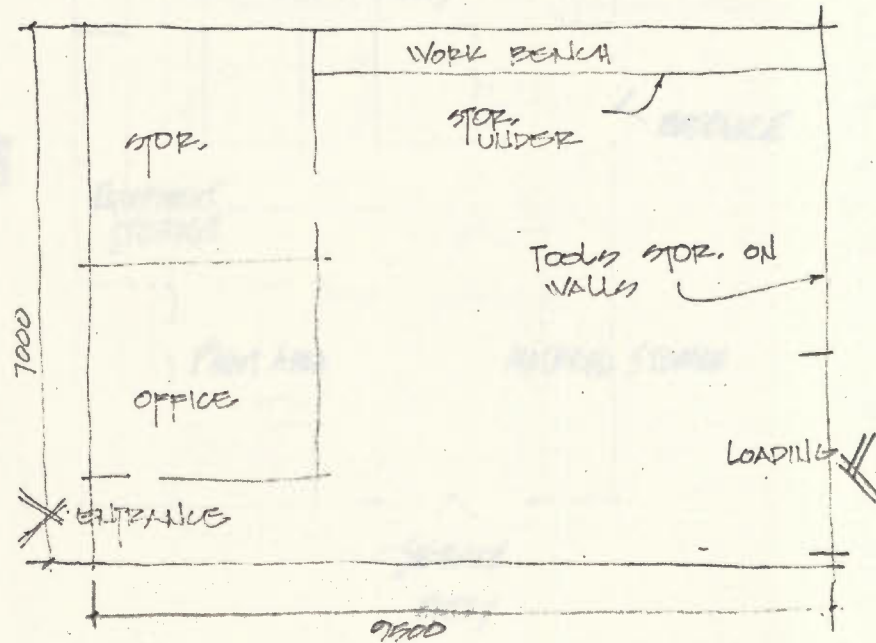 WORK BENCH
STOR.
UNDER
STOR.
TOOLS STOR. ON
WALLS
7000
OFFICE
LOADING
ENTRANCE
9500